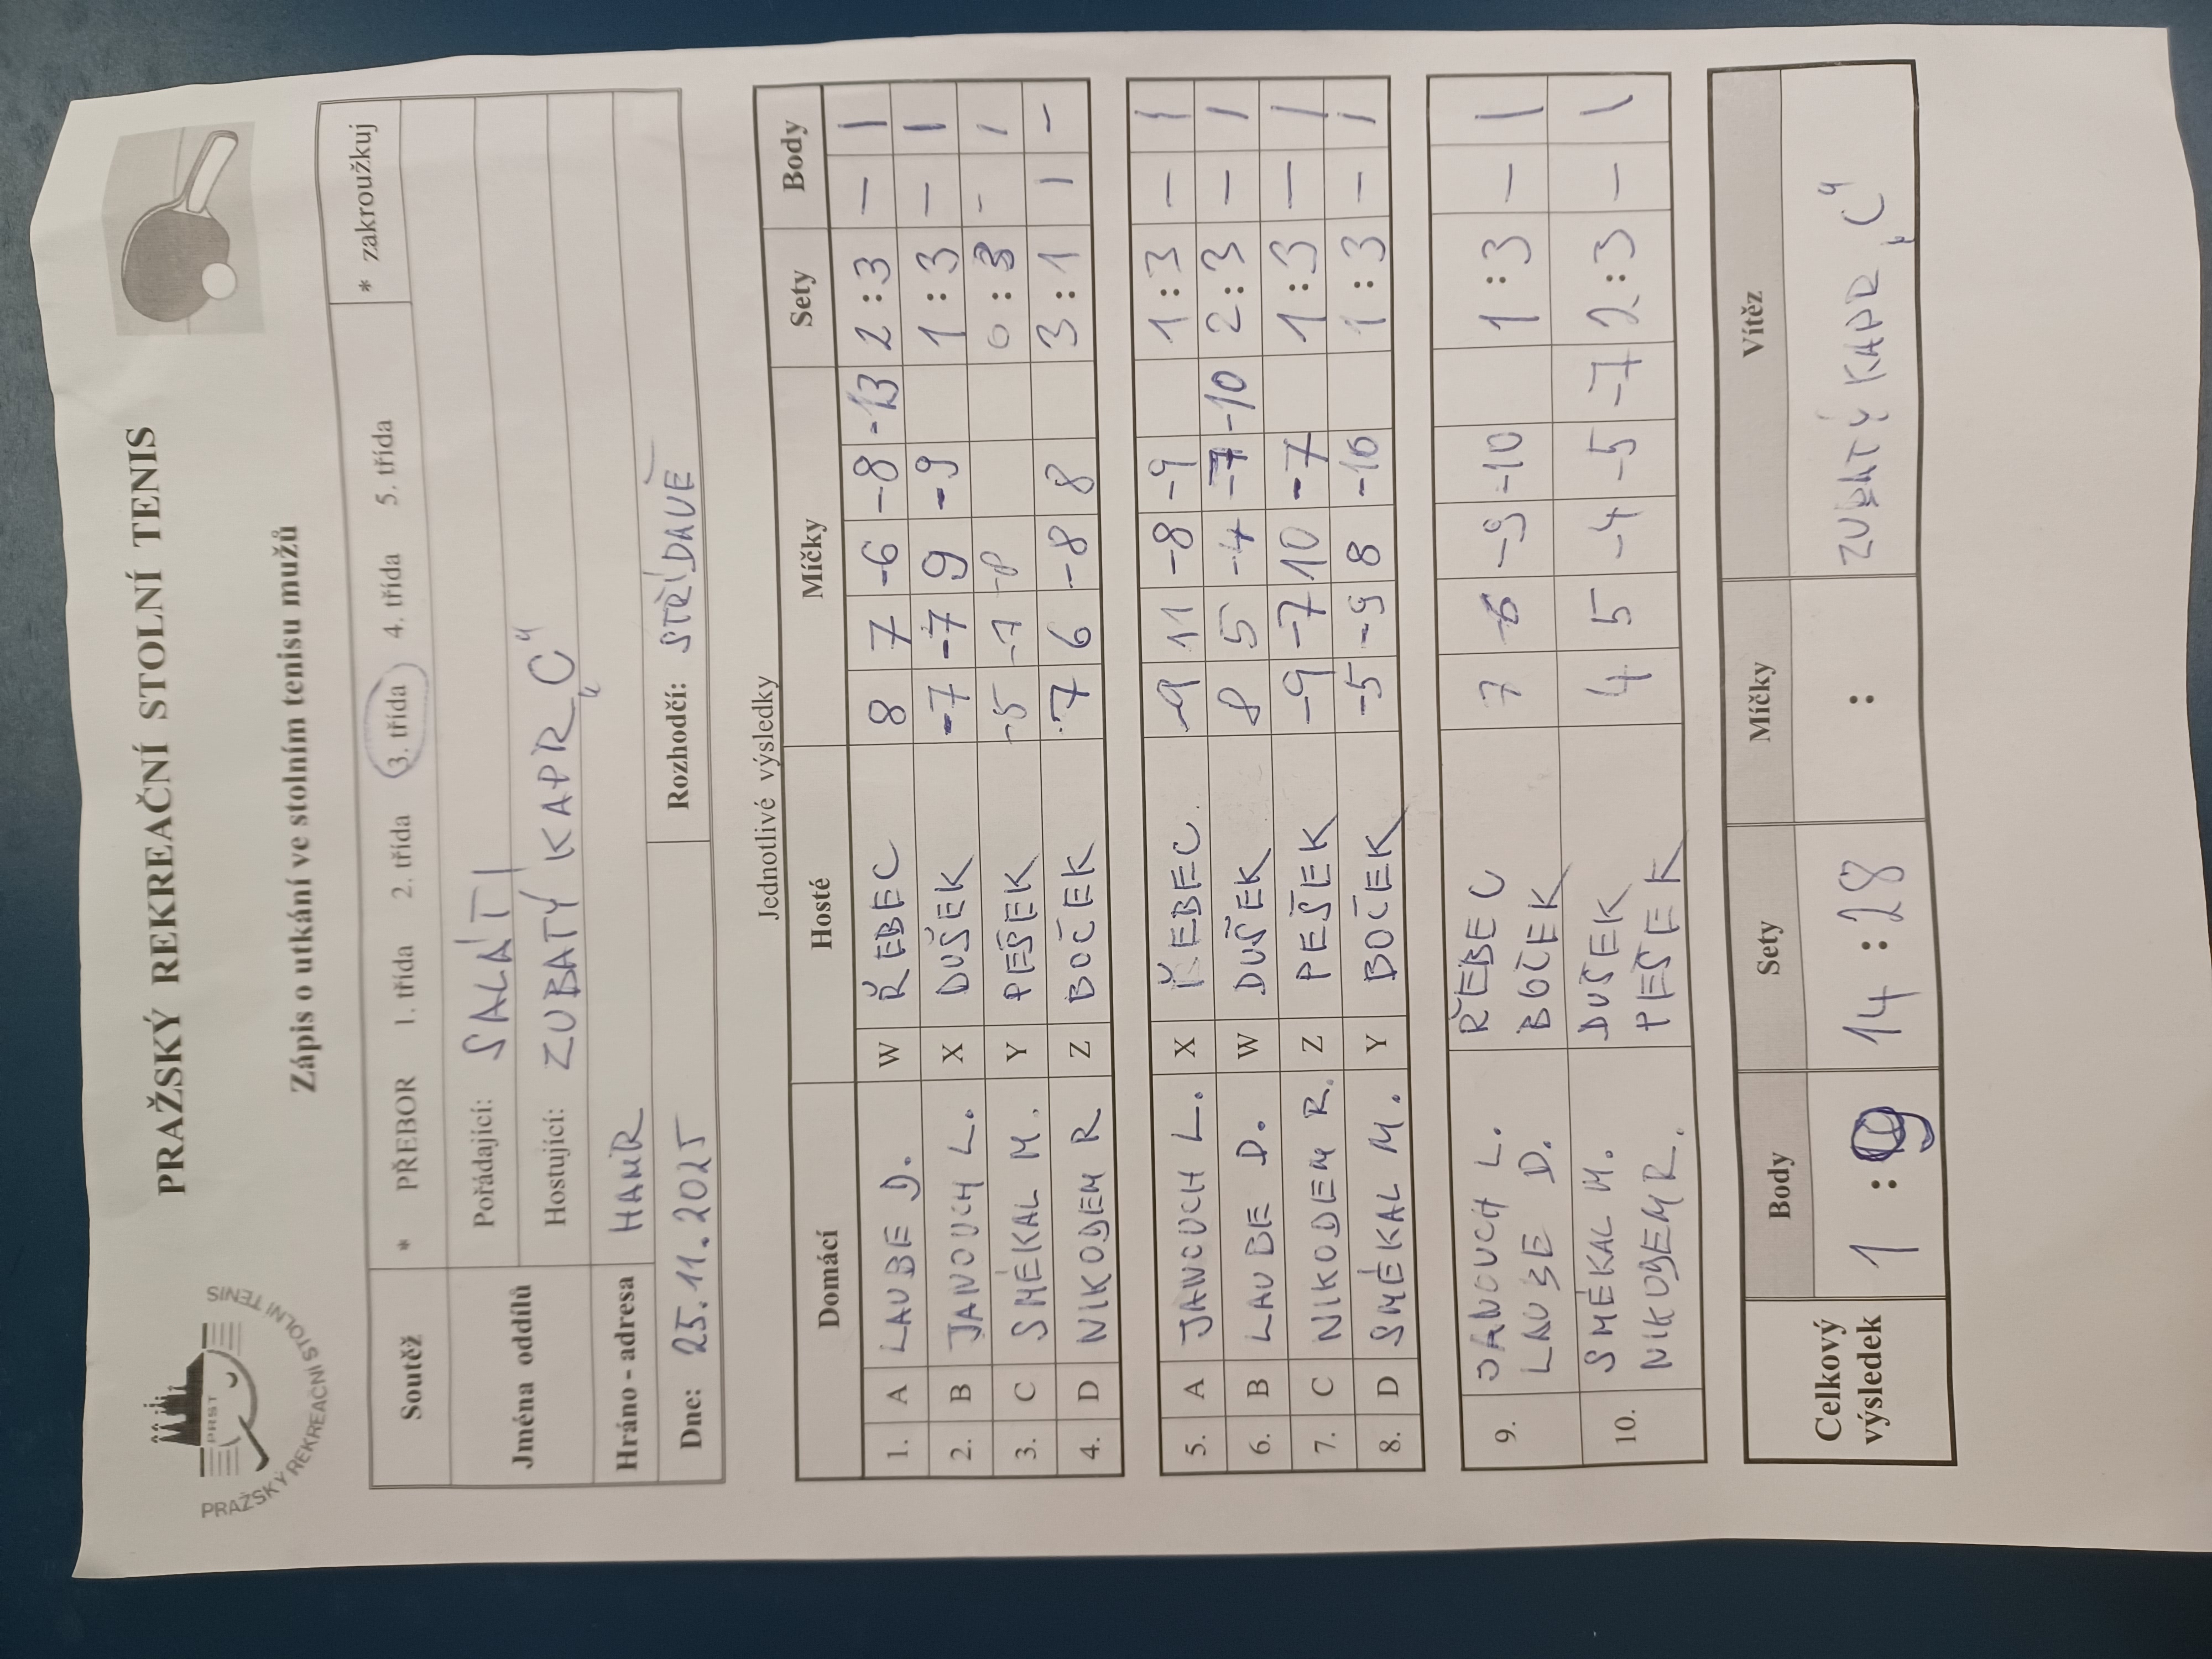 PRAŽSKÝ REKREAČNÍ STOLNÍ TENIS
PRST
PRAŽSKÝ REKREAČNÍ STOLNÍ TENIS
Zápis o utkání ve stolním tenisu mužů
Soutěž * PŘEBOR 1. třída 2. třída 3. třída 4. třída 5. třída * zakroužkuj
Jména oddílů Pořádající: SALÁTI
Hostující: ZUBATÝ KAPR „C"
Hráno - adresa HAMR
Dne: 25.11.2025 Rozhodčí: STŘÍDAVĚ
Jednotlivé výsledky
Domácí Hosté Míčky Sety Body
1. A LAUBE D. W ŘEBEC 8 7 -6 -8 -13 2 : 3 – 1
2. B JANOUCH L. X DUŠEK -7 -7 9 -9 1 : 3 – 1
3. C SMÉKAL M. Y PEŠEK -5 -7 -8 0 : 3 - 1
4. D NIKODEM R Z BOČEK 7 6 -8 8 3 : 1 1 –
5. A JANOUCH L. X ŘEBEC -9 11 -8 -9 1 : 3 – 1
6. B LAUBE D. W DUŠEK 8 5 -4 -7 -10 2 : 3 – 1
7. C NIKODEM R. Z PEŠEK -9 -7 10 -7 1 : 3 – 1
8. D SMÉKAL M. Y BOČEK -5 -9 8 -10 1 : 3 – 1
9. JANOUCH L. ŘEBEC 7 -9 -10 1 : 3 – 1
LAUBE D. BOČEK
10. SMÉKAL M. DUŠEK 4 5 -4 -5 -7 2 : 3 – 1
NIKODEM R. PEŠEK
Celkový výsledek Body Sety Míčky Vítěz
1 : 9 14 : 28 : ZUBATÝ KAPR „C"